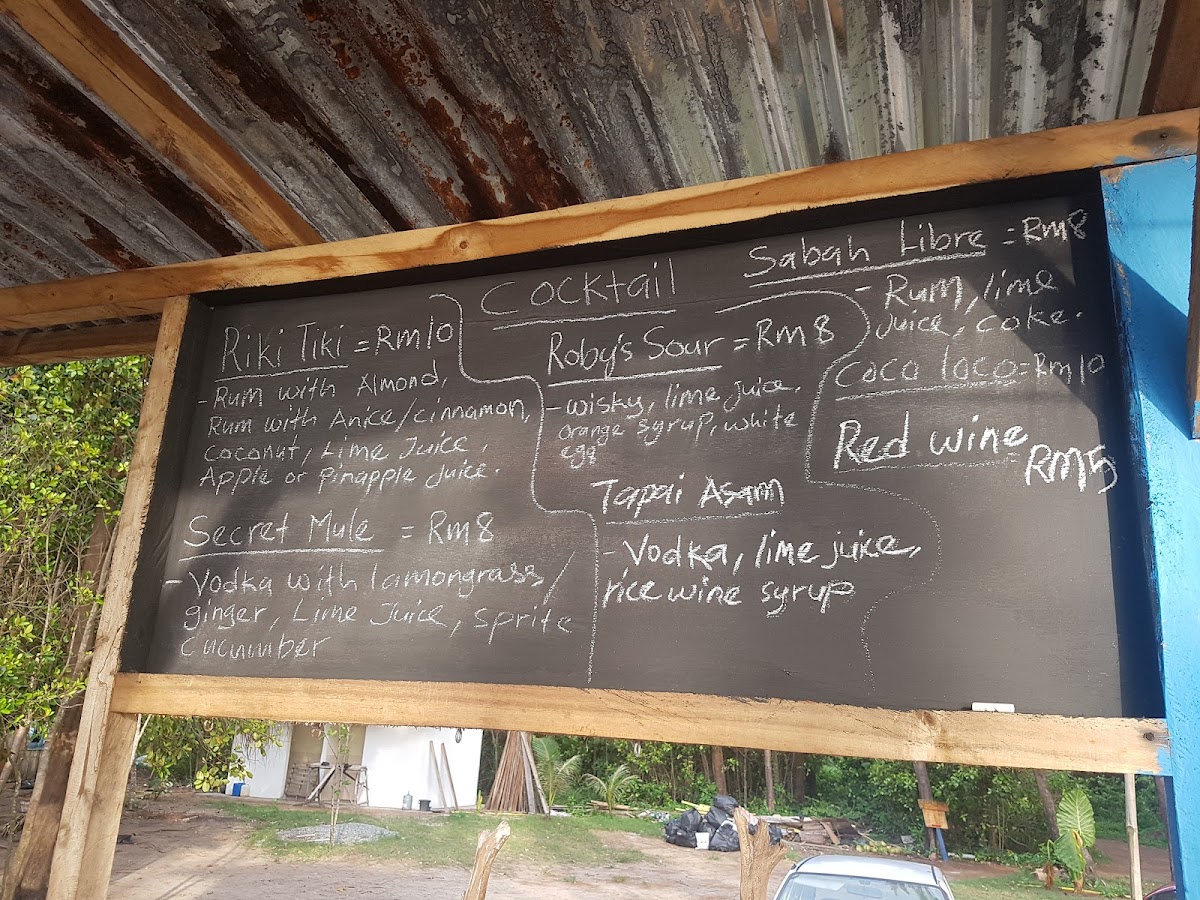 Cocktail
Riki Tiki = Rm10
- Rum with Almond,
Rum with Anice/cinnamon,
coconut, Lime Juice,
Apple or pinapple juice.
Secret Mule = Rm8
- Vodka with lamongrass/
ginger, Lime Juice, sprite
cucumber
Roby's Sour = Rm8
- wisky, lime juice.
orange syrup, white
egg
Tapai Asam
- Vodka, lime juice,
rice wine syrup
Sabah Libre = Rm8
- Rum, lime
juice, coke.
coco loco = Rm10
Red wine
Rm5